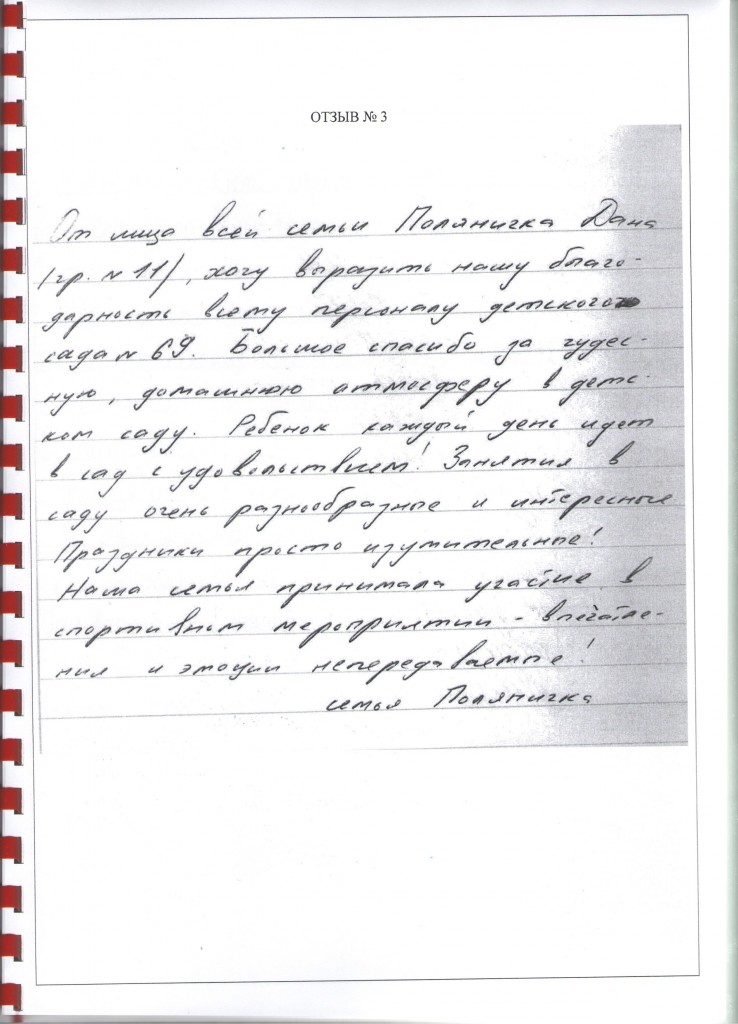 ОТЗЫВ № 3
От лица всей семьи Поляничка Дана
/гр. №11/, хочу выразить нашу благо-
дарность всему персоналу детского
сада № 69. Большое спасибо за чудес-
ную, домашнюю атмосферу в детс-
ком саду. Ребенок каждый день идет
в сад с удовольствием! Занятия в
саду очень разнообразные и интересные
Праздники просто изумительные!
Наша семья принимала участие в
спортивном мероприятии - впечатле-
ния и эмоции непередаваемые!
семья Поляничка